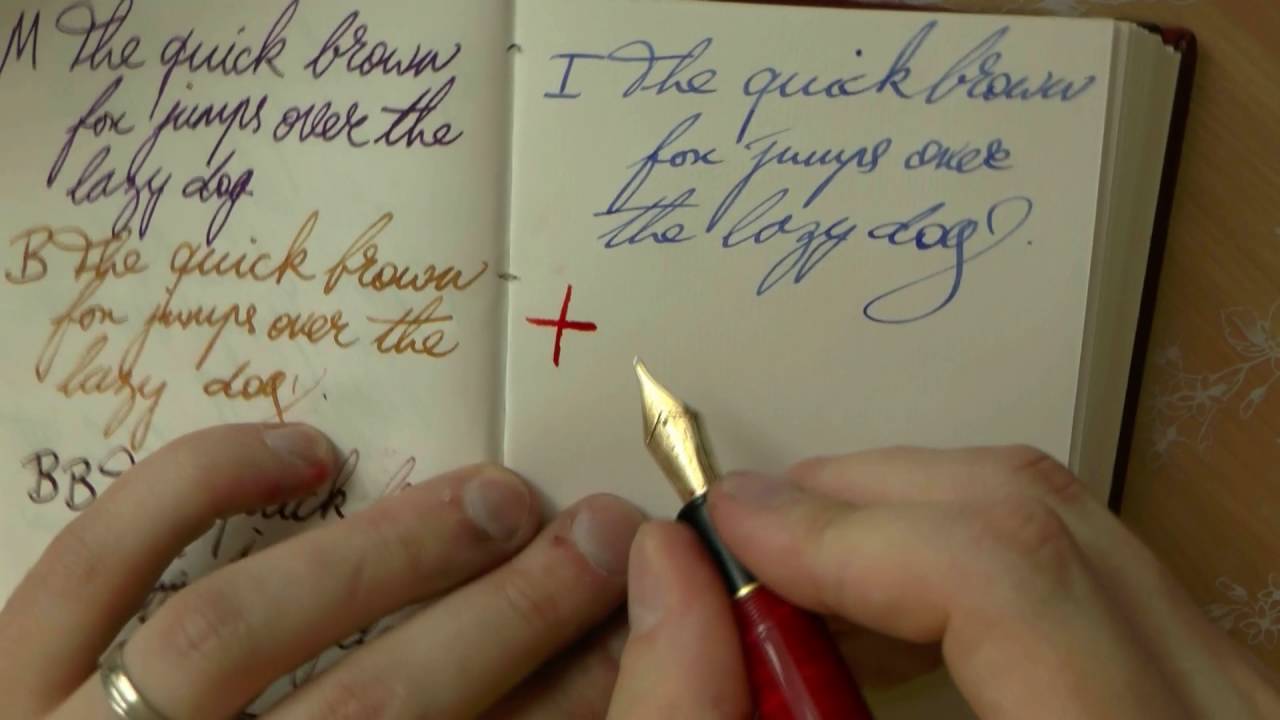 M The quick brown
fox jumps over the
lazy dog
B The quick brown
fox jumps over the
lazy dog.
BB
I The quick brown
fox jumps over
the lazy dog.
+